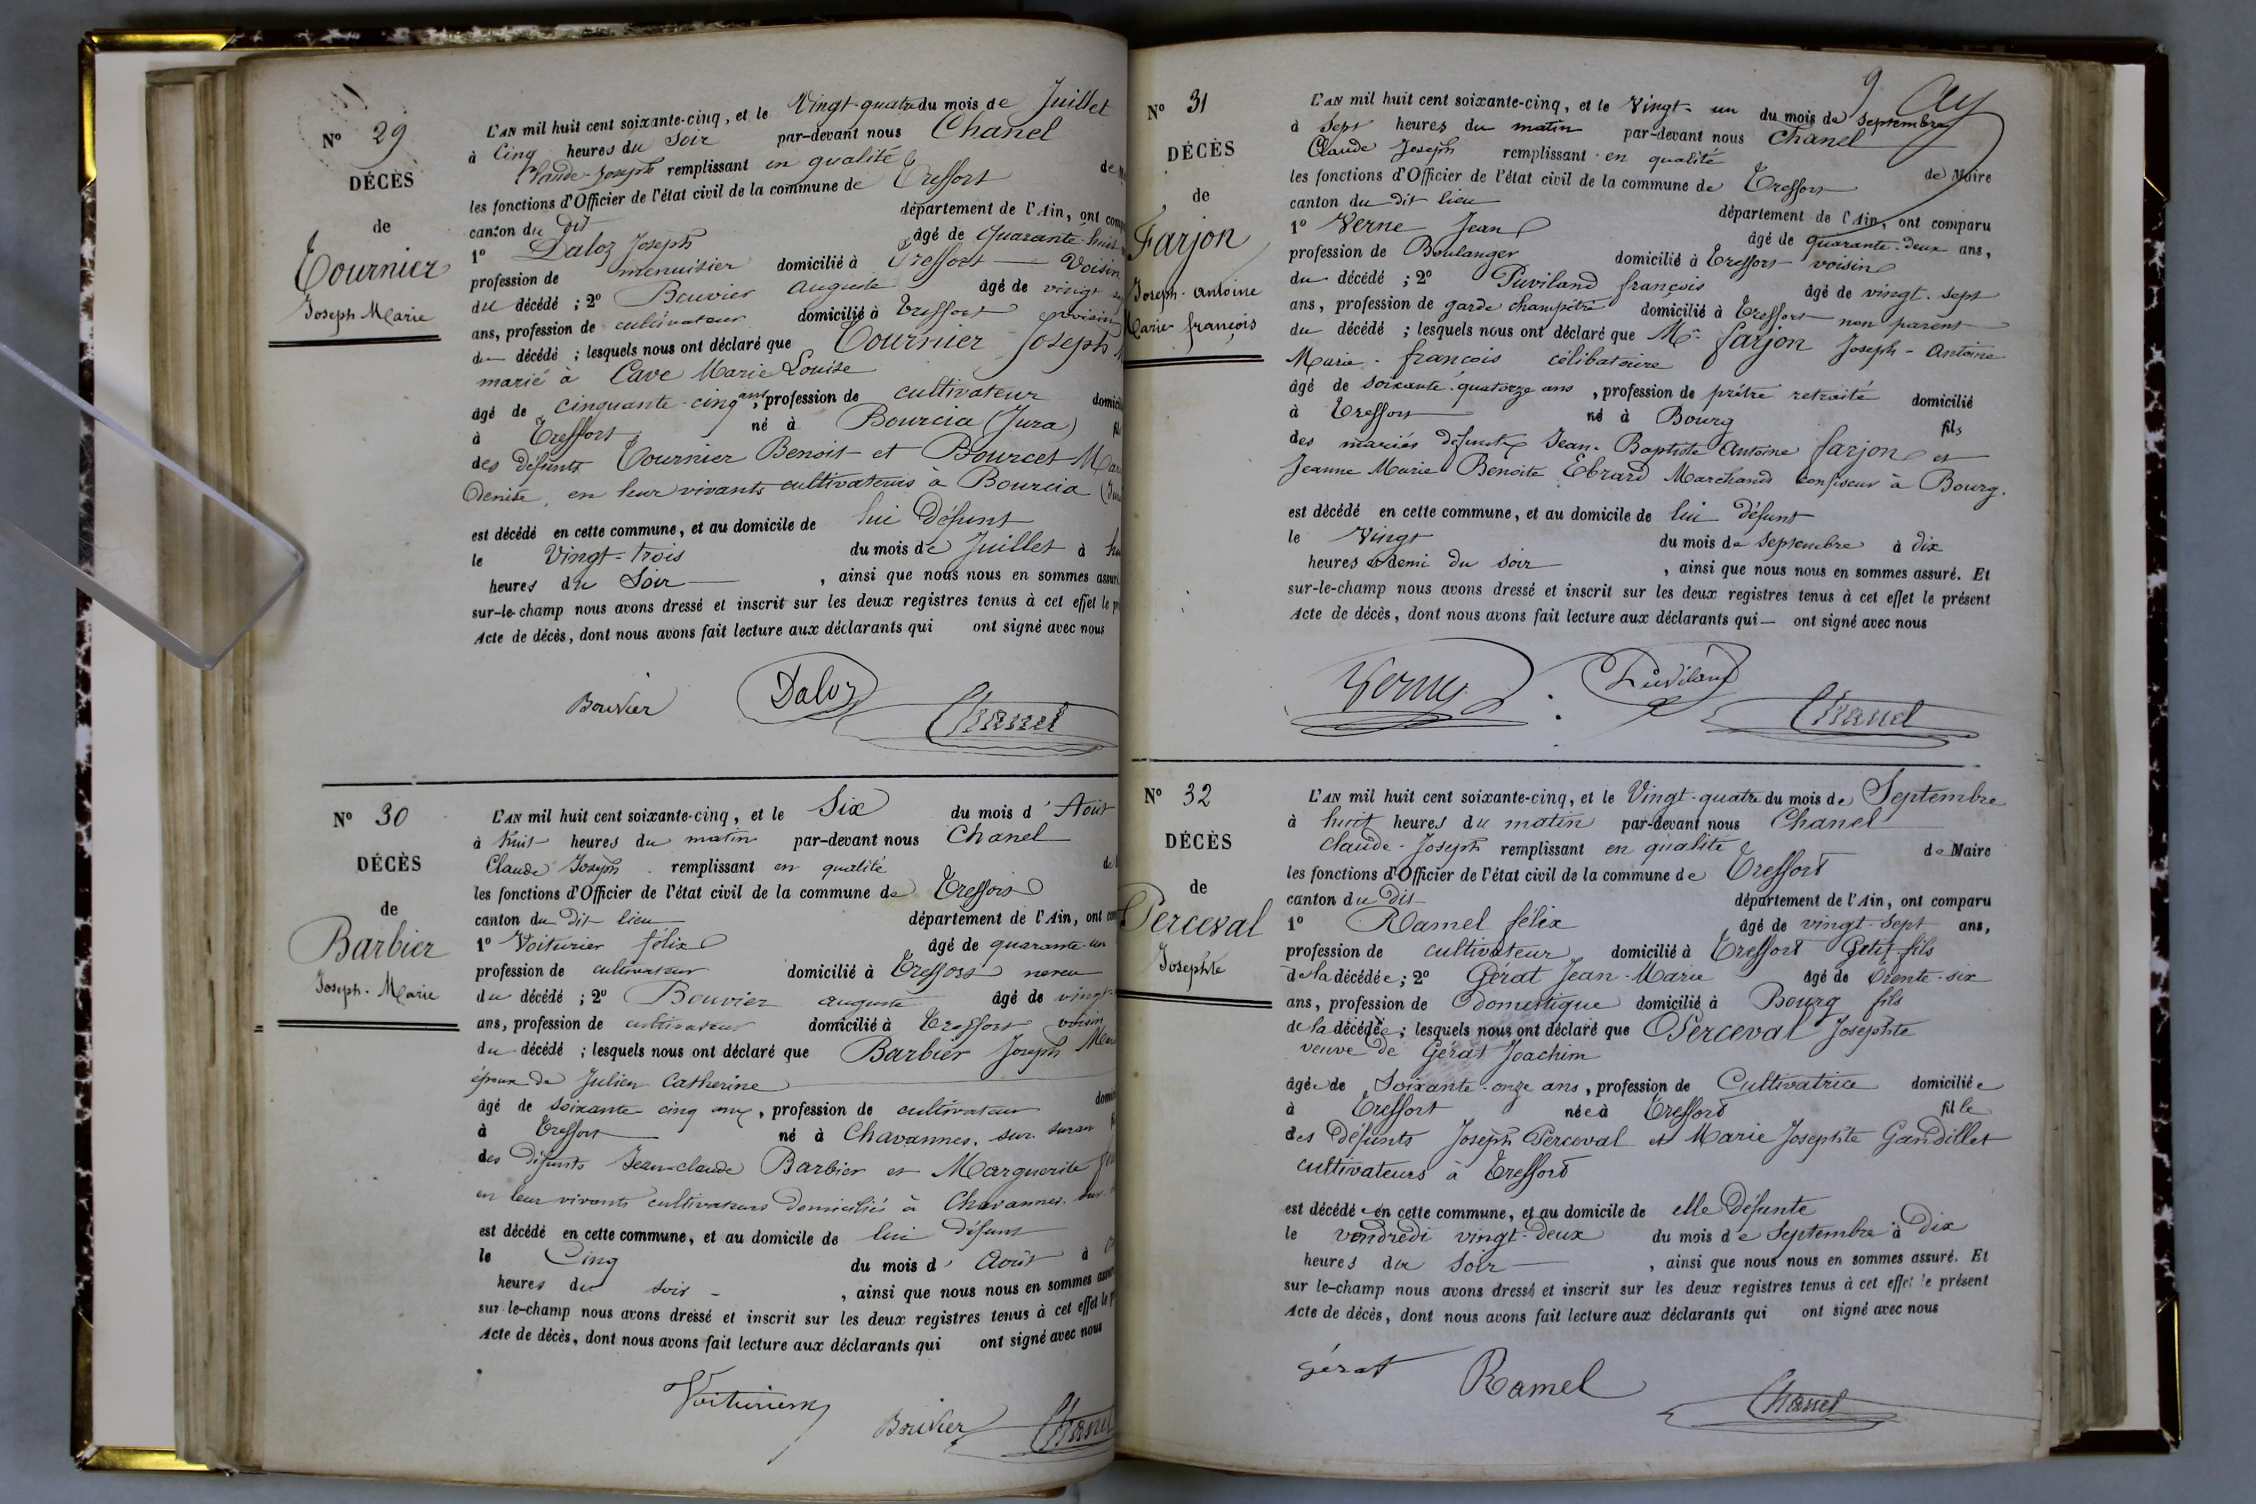 N° 29
DÉCÈS
de
Tournier
Joseph Marie
L'AN mil huit cent soixante-cinq, et le Vingt-quatre du mois de Juillet
à Cinq heures du Soir par-devant nous Chanel
Claude-Joseph remplissant en qualité de
les fonctions d'Officier de l'état civil de la commune de Treffort
canton du dit département de l'Ain, ont
1° Daloz Joseph âgé de Quarante-huit
profession de menuisier domicilié à Treffort Voisin
du décédé ; 2° Bouvier auguste âgé de vingt
ans, profession de cultivateur domicilié à Treffort voisin
du décédé ; lesquels nous ont déclaré que Tournier Joseph
marié à Cave Marie Louise
âgé de cinquante-cinq ans, profession de cultivateur
à Treffort né à Bourcia (Jura)
des défunts Tournier Benoit et Bourcet
Denise, en leur vivants cultivateurs à Bourcia
est décédé en cette commune, et au domicile de lui Défunt
le Vingt-trois du mois de Juillet à
heures du Soir, ainsi que nous nous en sommes
sur-le-champ nous avons dressé et inscrit sur les deux registres tenus à cet effet le
Acte de décès, dont nous avons fait lecture aux déclarants qui ont signé avec nous
Bouvier Daloz Chanel
N° 30
DÉCÈS
de
Barbier
Joseph-Marie
L'AN mil huit cent soixante-cinq, et le Six du mois d'Août
à huit heures du matin par-devant nous Chanel
Claude Joseph remplissant en qualité
les fonctions d'Officier de l'état civil de la commune de Treffort
canton du dit lieu département de l'Ain, ont
1° Voiturier félix âgé de quarante-un
profession de cultivateur domicilié à Treffort neveu
du décédé ; 2° Bouvier auguste âgé de vingt
ans, profession de cultivateur domicilié à Treffort voisin
du décédé ; lesquels nous ont déclaré que Barbier Joseph
époux de Julien Catherine
âgé de soixante cinq ans, profession de cultivateur
à Treffort né à Chavannes-sur-suran
des défunts Jean-claude Barbier et Marguerite
en leur vivants cultivateurs Domiciliés à Chavannes-sur
est décédé en cette commune, et au domicile de lui défunt
le Cinq du mois d'Août à
heures du soir, ainsi que nous nous en sommes
sur-le-champ nous avons dressé et inscrit sur les deux registres tenus à cet effet le
Acte de décès, dont nous avons fait lecture aux déclarants qui ont signé avec nous
Voiturier Bouvier Chanel
9
N° 31
DÉCÈS
de
Farjon
Joseph-Antoine
Marie-françois
L'AN mil huit cent soixante-cinq, et le Vingt-un du mois de Septembre
à Sept heures du matin par-devant nous Chanel
Claude Joseph remplissant en qualité de Maire
les fonctions d'Officier de l'état civil de la commune de Treffort
canton du dit lieu département de l'Ain, ont comparu
1° Verne Jean âgé de quarante-deux ans,
profession de Boulanger domicilié à Treffort voisin
du décédé ; 2° Puviland françois âgé de vingt-sept
ans, profession de garde champêtre domicilié à Treffort non parent
du décédé ; lesquels nous ont déclaré que Mr farjon Joseph-Antoine
Marie-françois célibataire
âgé de soixante-quatorze ans, profession de prêtre retraité domicilié
à Treffort né à Bourg fils
des mariés défunts Jean-Baptiste Antoine farjon et
Jeanne Marie Benoite Ebrard Marchand Confiseur à Bourg.
est décédé en cette commune, et au domicile de lui défunt
le Vingt du mois de septembre à dix
heures et demi du soir, ainsi que nous nous en sommes assuré. Et
sur-le-champ nous avons dressé et inscrit sur les deux registres tenus à cet effet le présent
Acte de décès, dont nous avons fait lecture aux déclarants qui ont signé avec nous
Verne Puviland Chanel
N° 32
DÉCÈS
de
Perceval
Josephte
L'AN mil huit cent soixante-cinq, et le Vingt-quatre du mois de Septembre
à huit heures du matin par-devant nous Chanel
Claude-Joseph remplissant en qualité de Maire
les fonctions d'Officier de l'état civil de la commune de Treffort
canton du Dit département de l'Ain, ont comparu
1° Ramel félix âgé de vingt-sept ans,
profession de cultivateur domicilié à Treffort Petit-fils
de la décédée ; 2° Gérat Jean-Marie âgé de trente-six
ans, profession de Domestique domicilié à Bourg fils
de la décédée ; lesquels nous ont déclaré que Perceval Josephte
veuve de Gérat Joachim
âgée de Soixante-onze ans, profession de Cultivatrice domiciliée
à Treffort née à Treffort fille
des Défunts Joseph Perceval et Marie Josephte Gandillet
cultivateurs à Treffort
est décédée en cette commune, et au domicile de elle Défunte
le vendredi vingt-deux du mois de Septembre à Dix
heures du Soir, ainsi que nous nous en sommes assuré. Et
sur le-champ nous avons dressé et inscrit sur les deux registres tenus à cet effet le présent
Acte de décès, dont nous avons fait lecture aux déclarants qui ont signé avec nous
Gérat Ramel Chanel